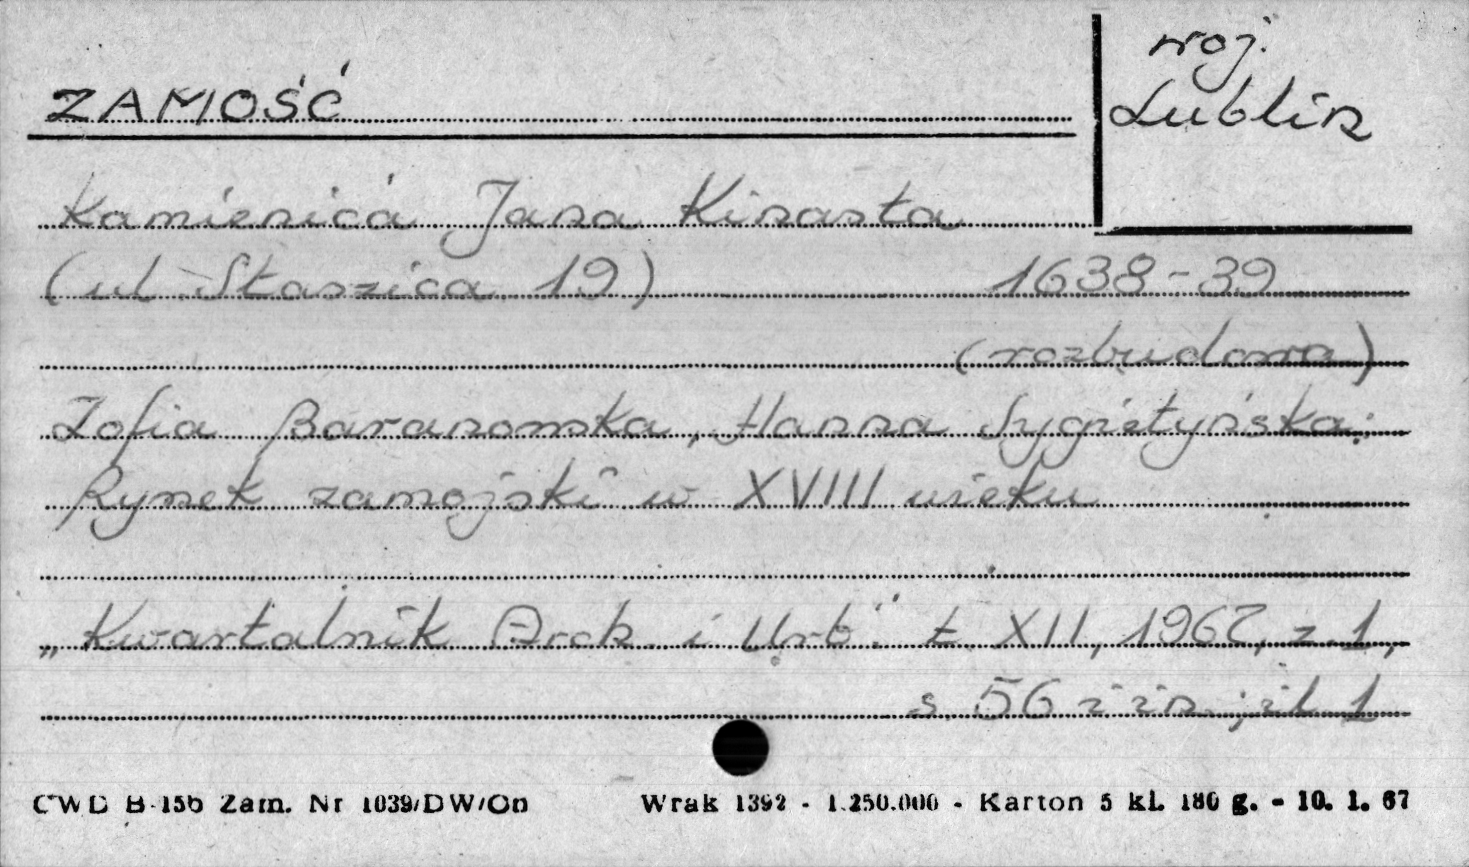 woj.
Lublin
ZAMOŚĆ
Kamienica Jana Kinasta
(ul. Staszica 19) 1638-39
(rozbudowa)
Zofia Baranowska, Hanna Sygietyńska:
Rynek zamojski w XVIII wieku
„Kwartalnik Arch. i Urb." t. XII, 1967, z. 1,
s. 56 i in.; il. 1
CWD B-156 Zam. Nr 1039/DW/On Wrak 1392 - 1.250.000 - Karton 5 kl. 180 g. - 10. 1. 67